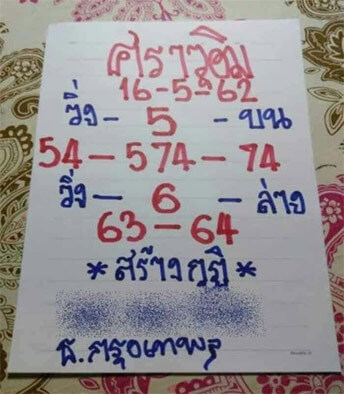 ศราวุธิม
16-5-62
วิ่ง - 5 - บน
54 - 574 - 74
วิ่ง - 6 - ล่าง
63 - 64
*สร้างกุฏิ*
ธ.กรุงเทพ